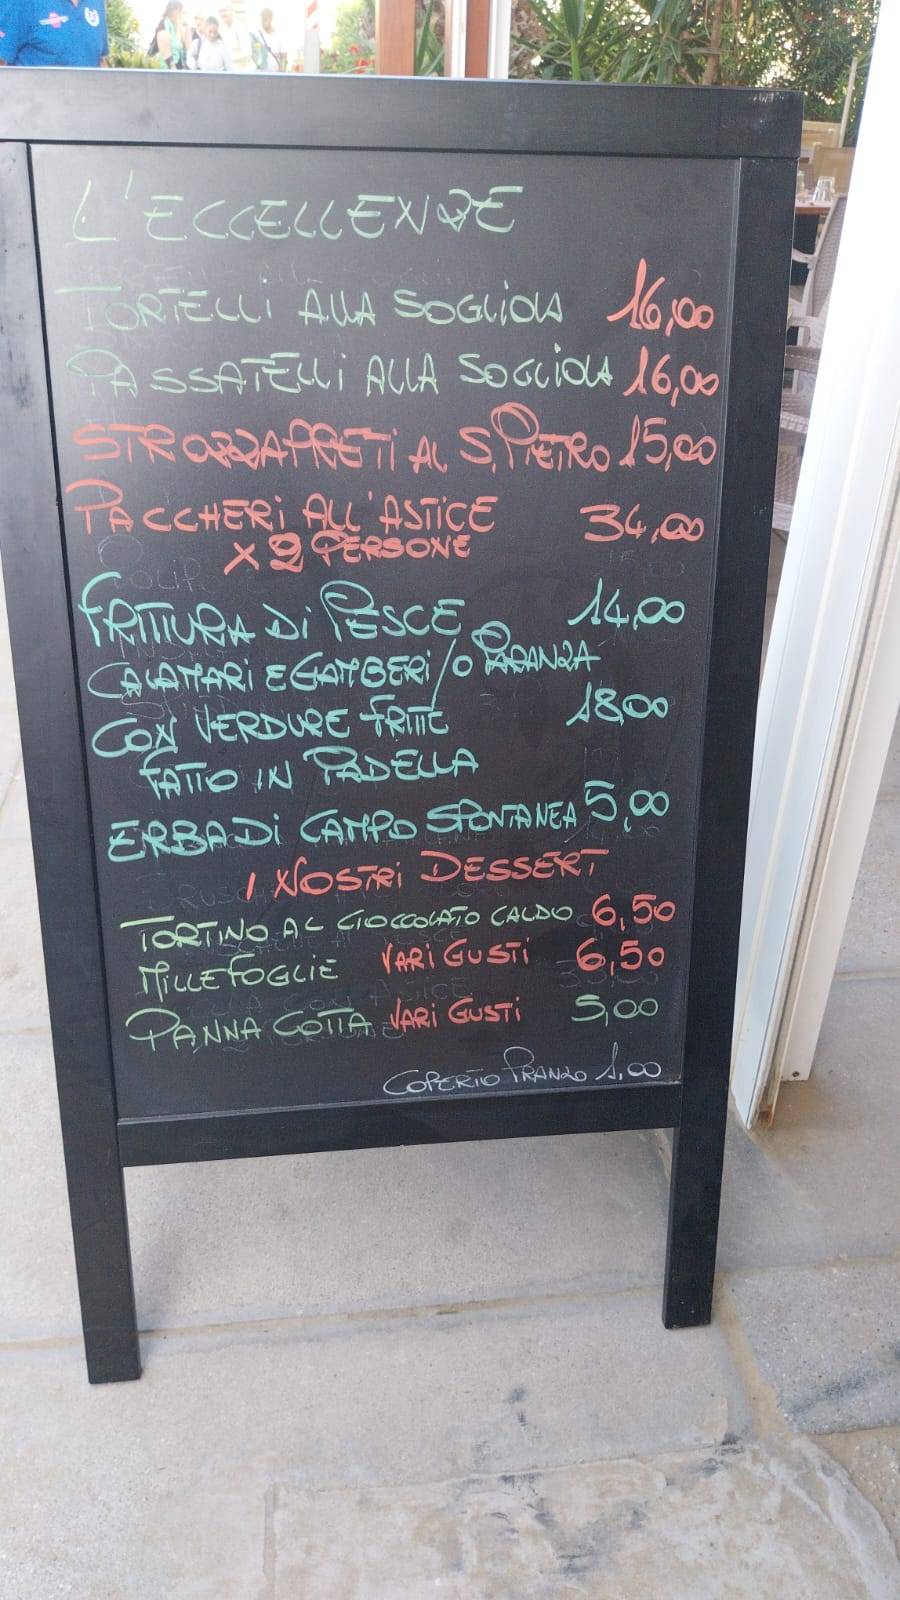 L'ECCELLENZE
TORTELLI ALLA SOGLIOLA 16,00
PASSATELLI ALLA SOGLIOLA 16,00
STROZZAPRETI AL S.PIETRO 15,00
PACCHERI ALL'ASTICE 34,00
X 2 PERSONE
FRITTURA DI PESCE 14,00
CALAMARI E GAMBERI/O PARANZA
CON VERDURE FRITTE 18,00
FATTO IN PADELLA
ERBA DI CAMPO SPONTANEA 5,00
I NOSTRI DESSERT
TORTINO AL CIOCCOLATO CALDO 6,50
MILLEFOGLIE VARI GUSTI 6,50
PANNA COTTA VARI GUSTI 5,00
COPERTO PRANZO 1,00